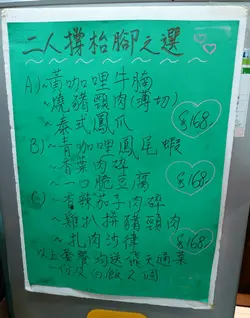 二人撐枱腳之選
A)~黃咖哩牛腩
~燒豬頸肉(薄切)
~泰式鳳爪
$168
B)~青咖哩鳳尾蝦
~香葉肉碎
~一口脆豆腐
$168
C)~香辣茄子肉碎
~雞扒拼豬頸肉
~扎肉沙律
$168
以上套餐均送飛天通菜
一份及白飯2個